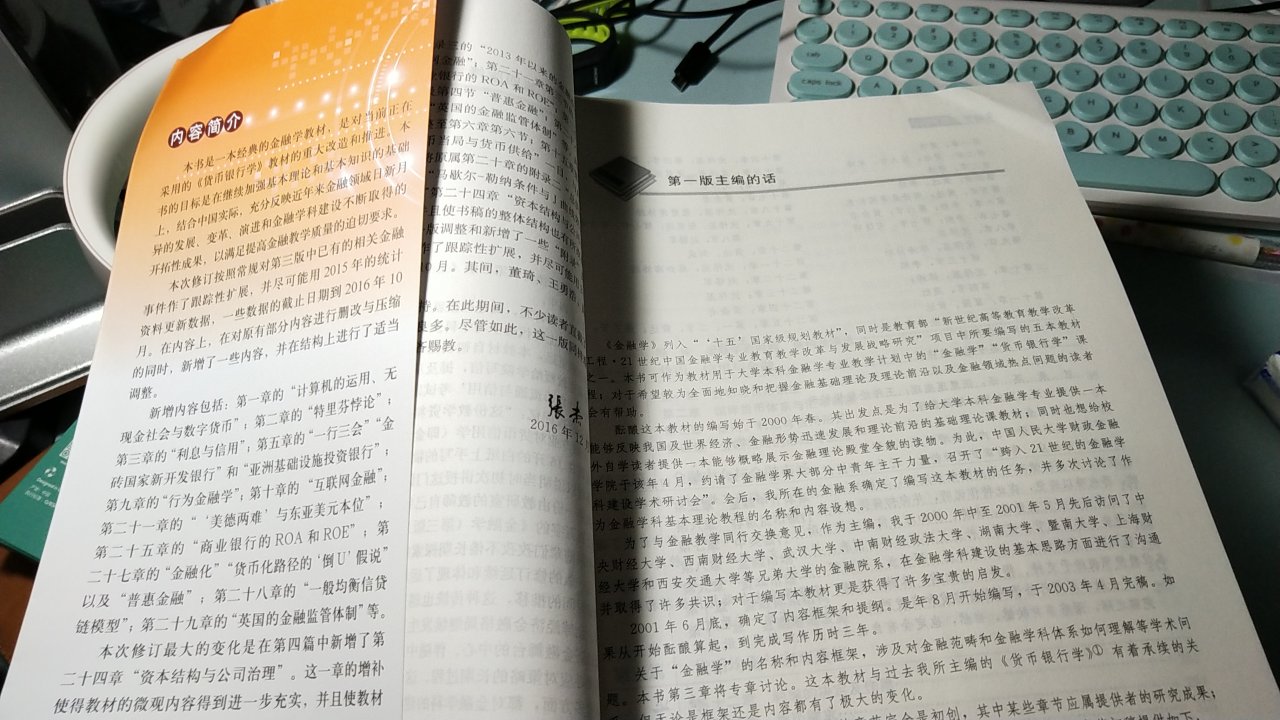 内容简介
本书是一本经典的金融学教材，是对当前正在
采用的《货币银行学》教材的重大改造和推进。本
书的目标是在继续加强基本理论和基本知识的基础
上，结合中国实际，充分反映近年来金融领域日新月
异的发展、变革、演进和金融学科建设不断取得的
开拓性成果，以满足提高金融教学质量的迫切要求。
本次修订按照常规对第三版中已有的相关金融
事件作了跟踪性扩展，并尽可能用2015年的统计
资料更新数据，一些数据的截止日期到2016年10
月。在内容上，在对原有部分内容进行删改与压缩
的同时，新增了一些内容，并在结构上进行了适当
调整。
新增内容包括：第一章的“计算机的运用、无
现金社会与数字货币”；第二章的“特里芬悖论”；
第三章的“利息与信用”；第五章的“一行三会”“金
砖国家新开发银行”和“亚洲基础设施投资银行”；
第九章的“行为金融学”；第十章的“互联网金融”；
第二十一章的“‘美德两难’与东亚美元本位”；
第二十五章的“商业银行的ROA和ROE”；第
二十七章的“金融化”“货币化路径的‘倒U’假说”
以及“普惠金融”；第二十八章的“一般均衡信贷
链模型”；第二十九章的“英国的金融监管体制”等。
本次修订最大的变化是在第四篇中新增了第
二十四章“资本结构与公司治理”。这一章的增补
使得教材的微观内容得到进一步充实，并且使教材
录三的“2013年以来的
网金融”；第二十一章第
业银行的ROA和ROE”
第四节“普惠金融”
“英国的金融监管体制”
至第六章第六节，第十五
币当局与货币供给”
原属第二十章的附录二
“马歇尔-勒纳条件与J曲线
“第二十四章“资本结构
且使书稿的整体结构也有
版调整和新增了一些“附录”
作了跟踪性扩展，并尽可能
0月。其间，董琦、王勇
持。在此期间，不少读者直
很多。尽管如此，这一版
赐教。
张杰
2016年12
第一版主编的话
《金融学》列入“‘十五’国家级规划教材”，同时是教育部“新世纪高等教育教学改革
工程·21世纪中国金融学专业教育教学改革与发展战略研究”项目中所要编写的五本教材
之一。本书可作为教材用于大学本科金融学专业教学计划中的“金融学”“货币银行学”课
程；对于希望较为全面地知晓和把握金融基础理论及理论前沿以及金融领域热点问题的读者
会有帮助。
酝酿这本教材的编写始于2000年春。其出发点是为了给大学本科金融学专业提供一本
能够反映我国及世界经济、金融形势迅速发展和理论前沿的基础理论课教材；同时也想给校
外自学读者提供一本能够概略展示金融理论殿堂全貌的读物。为此，中国人民大学财政金融
学院于该年4月，约请了金融学界大部分中青年主干力量，召开了“跨入21世纪的金融学
科建设学术研讨会”。会后，我所在的金融系确定了编写这本教材的任务，并多次讨论了作
为金融学科基本理论教程的名称和内容设想。
为了与金融教学同行交换意见，作为主编，我于2000年中至2001年5月先后访问了中
央财经大学、西南财经大学、武汉大学、中南财经政法大学、湖南大学、暨南大学、上海财
经大学和西安交通大学等兄弟大学的金融院系，在金融学科建设的基本思路方面进行了沟通
并取得了许多共识；对于编写本教材更是获得了许多宝贵的启发。
2001年6月底，确定了内容框架和提纲。是年8月开始编写，于2003年4月完稿。如
果从开始酝酿算起，到完成写作历时三年。
关于“金融学”的名称和内容框架，涉及对金融范畴和金融学科体系如何理解等学术问
题。本书第三章将专章讨论。这本教材与过去我所主编的《货币银行学》①有着承续的关
系，但无论是框架还是内容都有了极大的变化。
章节完全是初创，其中某些章节应属提供者的研究成果；
caps lock
alt